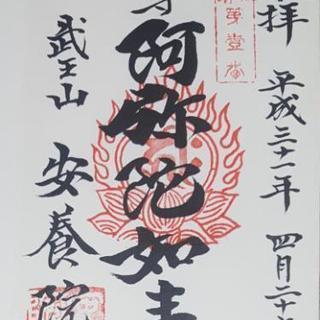 拝 平成三十一年 四月二十
阿弥陀如来
武王山 安養院